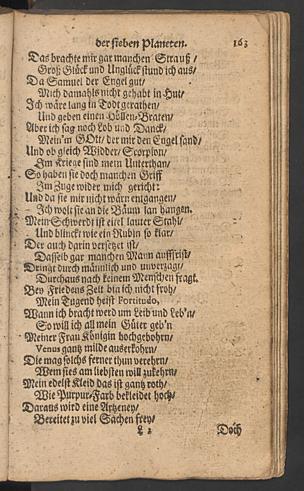 der sieben Planeten. 163
Das brachte mir gar manchen Strauß /
Groß Glück und Unglück stund ich aus /
Da Samuel der Engel gut /
Mich damahls nicht gehabt in Hut /
Ich wäre lang in Todt gerathen /
Und geben einen Höllen-Braten /
Aber ich sag noch Lob und Danck /
Mein'm GOtt / der mir den Engel sand /
Und ob gleich Widder / Scorpion /
Im Kriege sind mein Unterthan /
So haben sie doch manchen Griff
Im Zuge wider mich gericht:
Und da sie mir nicht wärn entgangen /
Ich wolt sie an die Bäum lan hangen.
Mein Schwerdt ist eitel lauter Stahl /
Und blinckt wie ein Rubin so klar /
Der auch darin versetzet ist /
Dasselb gar manchen Mann auffrist /
Dringt durch männlich und unverzagt /
Durchaus nach keinem Menschen fragt.
Bey Friedens Zeit bin ich nicht froh /
Mein Tugend heist Fortitudo,
Wann ich bracht werd um Leib und Leb'n /
So will ich all mein Güter geb'n
Meiner Frau Königin hochgebohrn /
Venus gantz milde auserkohrn /
Die mag solchs ferner thun verehrn /
Wem sies am liebsten will zukehrn /
Mein edelst Kleid das ist gantz roth /
Wie Purpur-Farb bekleidet hoch /
Daraus wird eine Artzeney /
Bereitet zu viel Sachen frey /
L 2 Doch